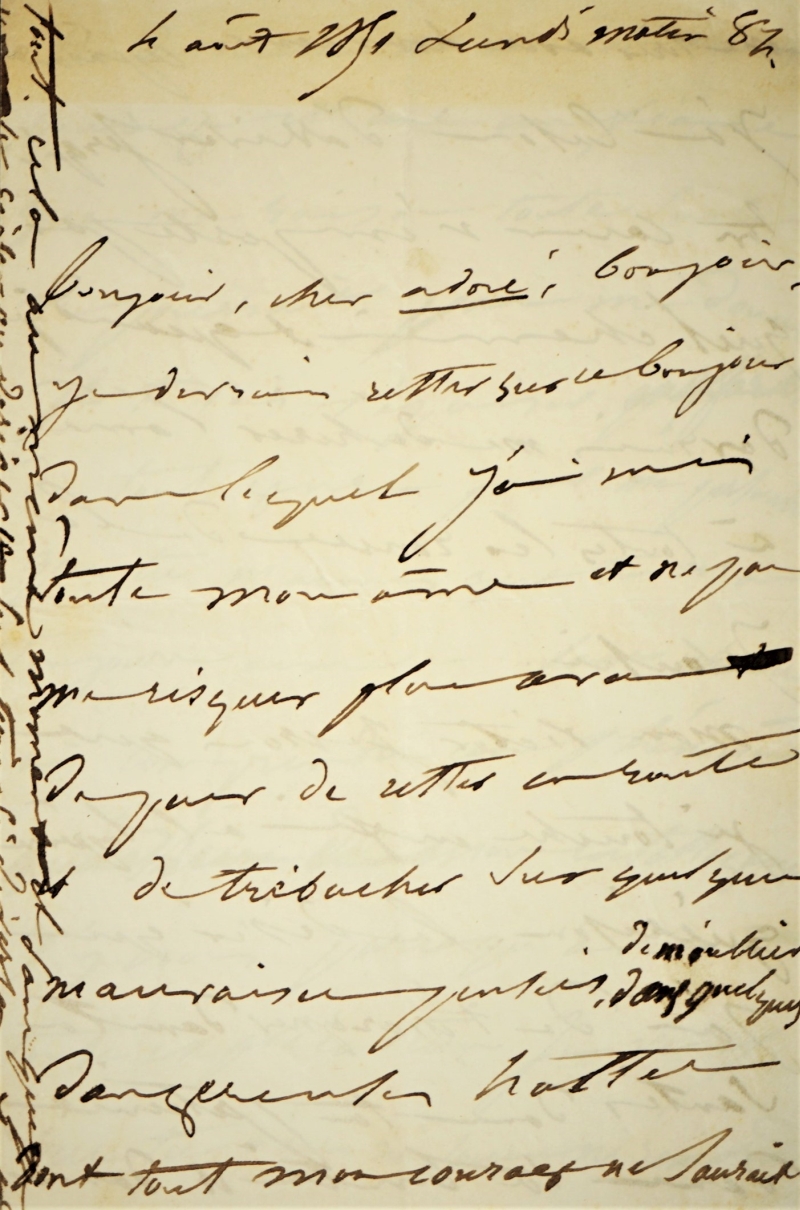 4 août 1851 Lundi matin 8h.
bonjour, cher adoré, bonjour,
je devrais rester sur ce bonjour
dans lequel j'ai mis
toute mon âme et ne pas
me risquer plus avant
de peur de rester en route
et de trébucher sur quelque
mauvaise pensée,
de m'oublier
dans quelques
dangereuses haltes
dont tout mon courage ne saurait
tout cela au même moment et